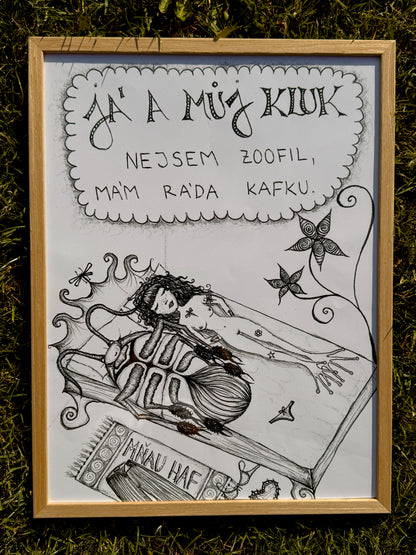 JÁ A MŮJ KLUK
NEJSEM ZOOFIL,
MÁM RÁDA KAFKU.
MŇAU HAF